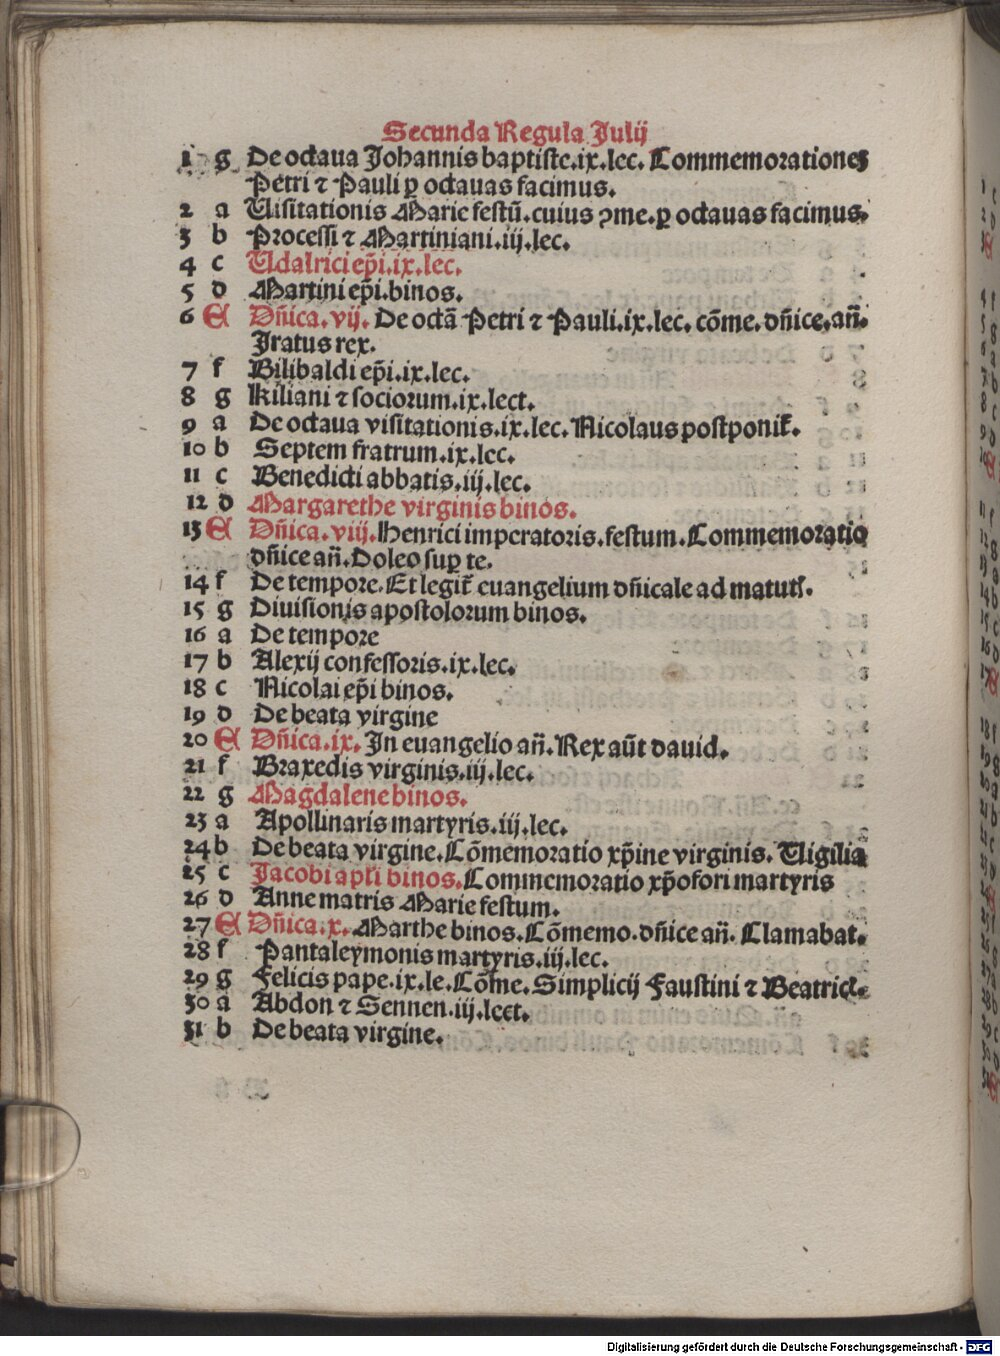 Secunda Regula Julij
1 g De octaua Johannis baptiste.ix.lec. Commemorationes
Petri ⁊ Pauli ꝑ octauas facimus.
2 a Uisitationis Marie festū.cuius ꝯme.ꝑ octauas facimus.
3 b Processi ⁊ Martiniani.iij.lec.
4 c Udalrici ep̄i.ix.lec.
5 d Martini ep̄i.binos.
6 E Dn̄ica.vij. De octā Petri ⁊ Pauli.ix.lec. cōme. dn̄ice.an̄.
Iratus rex.
7 f Bilibaldi ep̄i.ix.lec.
8 g Kiliani ⁊ sociorum.ix.lect.
9 a De octaua visitationis.ix.lec. Nicolaus postponit̄.
10 b Septem fratrum.ix.lec.
11 c Benedicti abbatis.iij.lec.
12 d Margarethe virginis binos.
13 E Dn̄ica.viij. Henrici imperatoris.festum.Commemoratio
dn̄ice an̄.Doleo suꝑ te.
14 f De tempore.Et legit̄ euangelium dn̄icale ad matut̄.
15 g Diuisionis apostolorum binos.
16 a De tempore
17 b Alexij confessoris.ix.lec.
18 c Nicolai ep̄i binos.
19 d De beata virgine
20 E Dn̄ica.ix. In euangelio an̄.Rex aūt dauid.
21 f Braxedis virginis.iij.lec.
22 g Magdalene binos.
23 a Apollinaris martyris.iij.lec.
24 b De beata virgine.Cōmemoratio xp̄ine virginis. Uigilia
25 c Jacobi apl̄i binos.Commemoratio xp̄ofori martyris
26 d Anne matris Marie festum.
27 E Dn̄ica.x. Marthe binos.Cōmemo.dn̄ice an̄. Clamabat.
28 f Pantaleymonis martyris.iij.lec.
29 g Felicis pape.ix.le.Cōme. Simplicij Faustini ⁊ Beatric̄.
30 a Abdon ⁊ Sennen.iij.lect.
31 b De beata virgine.
Digitalisierung gefördert durch die Deutsche Forschungsgemeinschaft - DFG